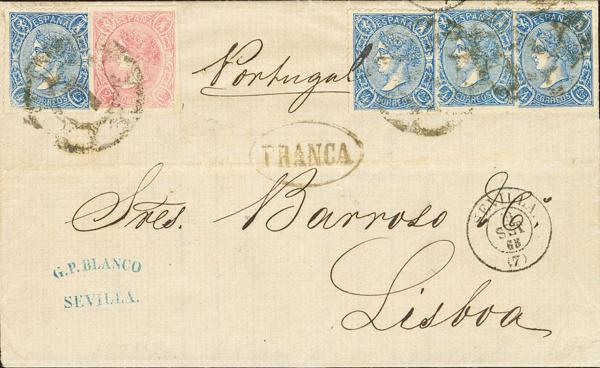 ESPAÑA
CORREOS
ESPAÑA
CORREOS
ESPAÑA
CORREOS
ESPAÑA
CORREOS
ESPAÑA
CORREOS
Portugal
FRANCA
Sres. Barroso
Lisboa
G.P. BLANCO
SEVILLA.
SEVILLA.
65
(7)